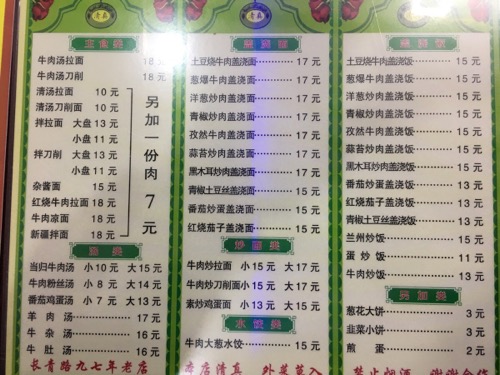 主食类
牛肉汤拉面 18 元
牛肉汤刀削 18 元
清汤拉面 10 元
清汤刀削面 10 元
拌拉面 大盘 13 元
小盘 11 元
拌刀削 大盘 13 元
小盘 11 元
杂酱面 15 元
红烧牛肉拉面 18 元
牛肉凉面 18 元
新疆拌面 18 元
另加一份肉7元
汤类
当归牛肉汤 小10元 大15元
牛肉粉丝汤 小 8 元 大14元
番茄鸡蛋汤 小 7 元 大13元
羊肉汤 17 元
牛杂汤 16 元
牛肚汤 16 元
长青路九七年老店
盖浇面
土豆烧牛肉盖浇面 17 元
葱爆牛肉盖浇面 17 元
洋葱炒肉盖浇面 17 元
青椒炒肉盖浇面 17 元
孜然牛肉盖浇面 17 元
蒜苔炒肉盖浇面 17 元
黑木耳炒肉盖浇面 17 元
青椒土豆丝盖浇面 15 元
番茄炒蛋盖浇面 15 元
红烧茄子盖浇面 15 元
炒面类
牛肉炒拉面 小 15 元 大 17元
牛肉炒刀削面小 15 元 大 17元
素炒鸡蛋面 小 13 元 大 15元
水饺类
牛肉大葱水饺 15 元
本店清真 外菜莫入
盖浇饭
土豆烧牛肉盖浇饭 15 元
葱爆牛肉盖浇饭 15 元
洋葱炒肉盖浇饭 15 元
青椒炒肉盖浇饭 15 元
孜然牛肉盖浇饭 15 元
蒜苔炒肉盖浇饭 15 元
黑木耳炒肉盖浇饭 15 元
番茄炒蛋盖浇饭 13 元
红烧茄子盖浇饭 13 元
青椒土豆丝盖浇饭 13 元
兰州炒饭 15 元
蛋炒饭 11 元
牛肉炒饭 13 元
另加类
葱花大饼 3 元
韭菜小饼 3 元
煎蛋 2 元
禁止烟酒 谢谢合作